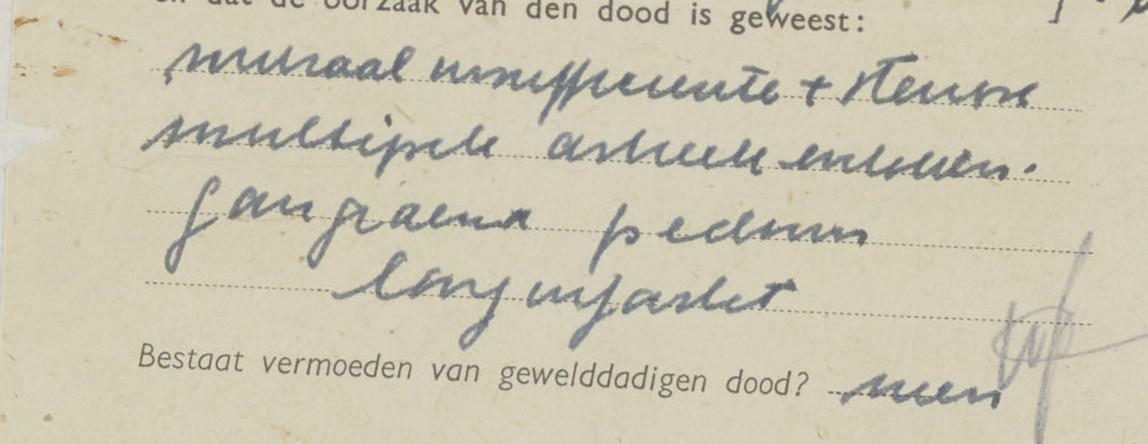 en dat de oorzaak van den dood is geweest:
mitraal insufficientie + stenose
multipele arterieele embolieën.
gangraena pedum
longinfarct
Bestaat vermoeden van gewelddadigen dood? neen